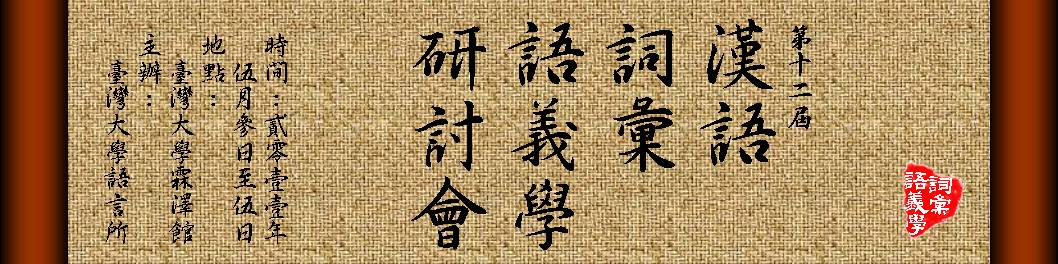 第十二屆
漢語
詞彙
語義學
研討會
時間：貳零壹壹年
伍月參日至伍日
地點：
臺灣大學霖澤館
主辦：
臺灣大學語言所
詞彙
語義學